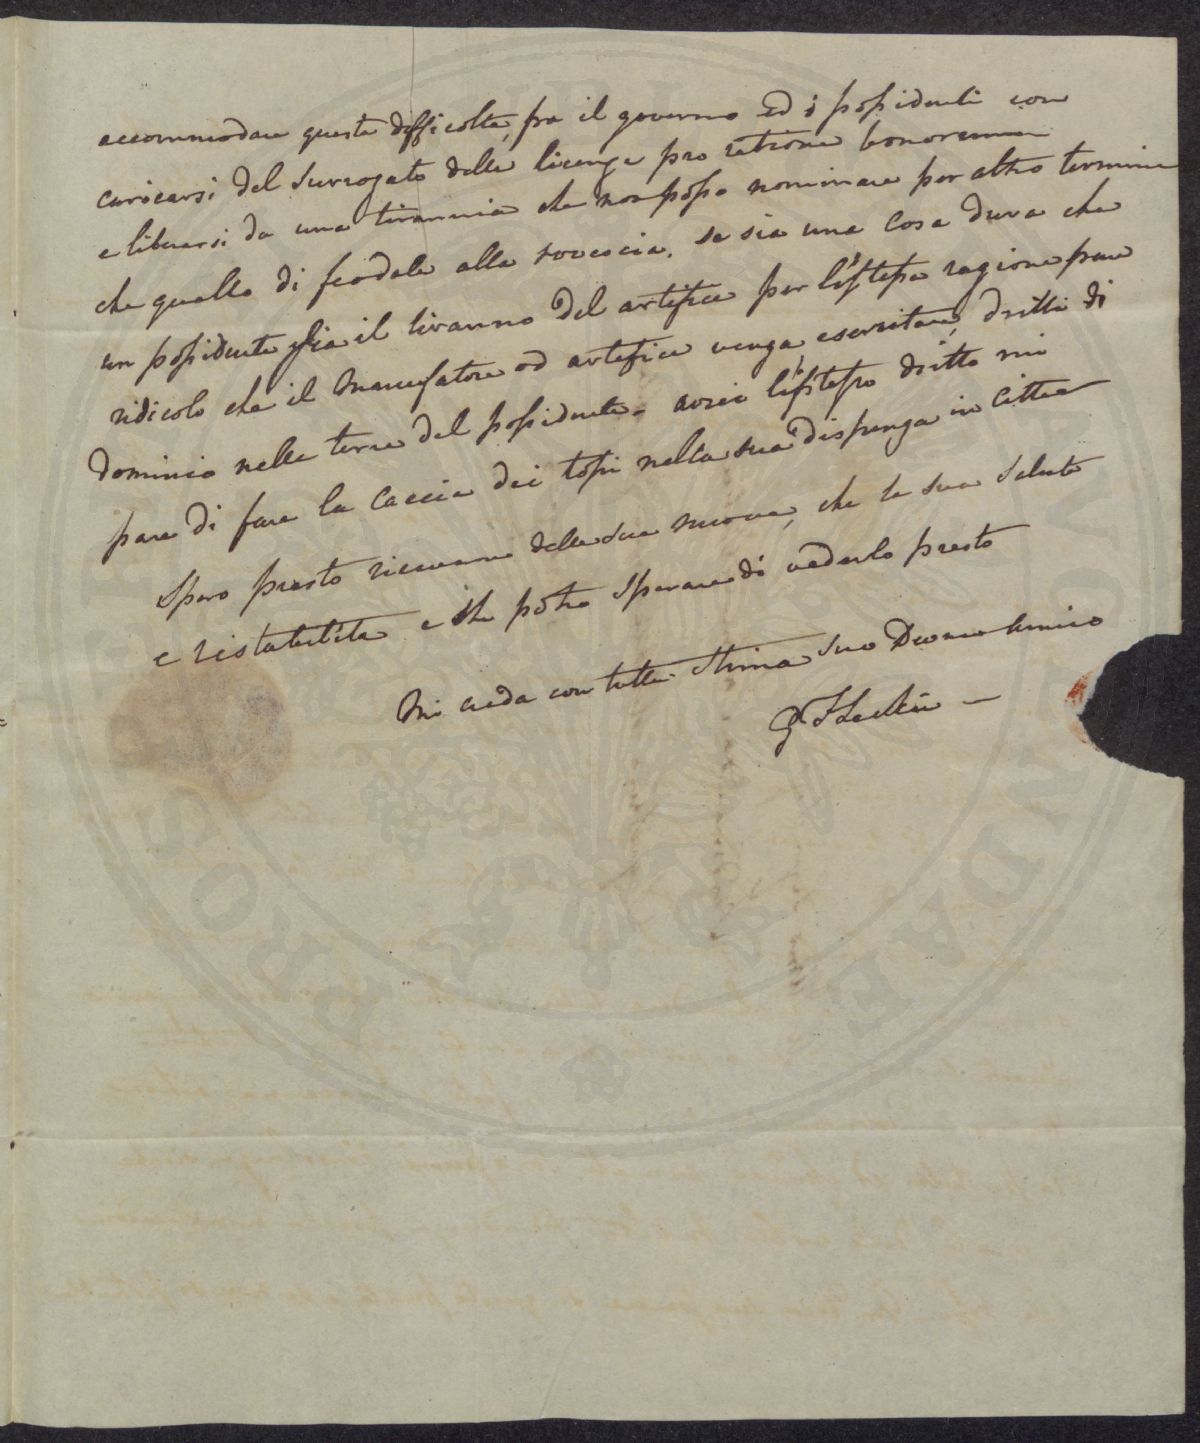 accommodare queste difficolta, fra il governo ed i possidenti con
caricarsi del surrogato delle licenze pro ratione bonorum
e liberarsi da una tirannia che non posso nominare per altro termine
che quello di feodale alla rovescia. se sia una cosa dura che
un possidente sia il tiranno del artefice per l'istessa ragione pare
ridicolo che il manufatore od artefice venga esercitare, dritti di
dominio nelle terre del possidente. avrei l'istesso dritto mi
pare di fare la caccia dei topi nella sua dispenza in Citta
Spero presto ricevere delle sue nuove, che la sua salute
e ristabilita e che potro sperare di vederlo presto
Mi creda con tutta stima suo Devmo Amico
G